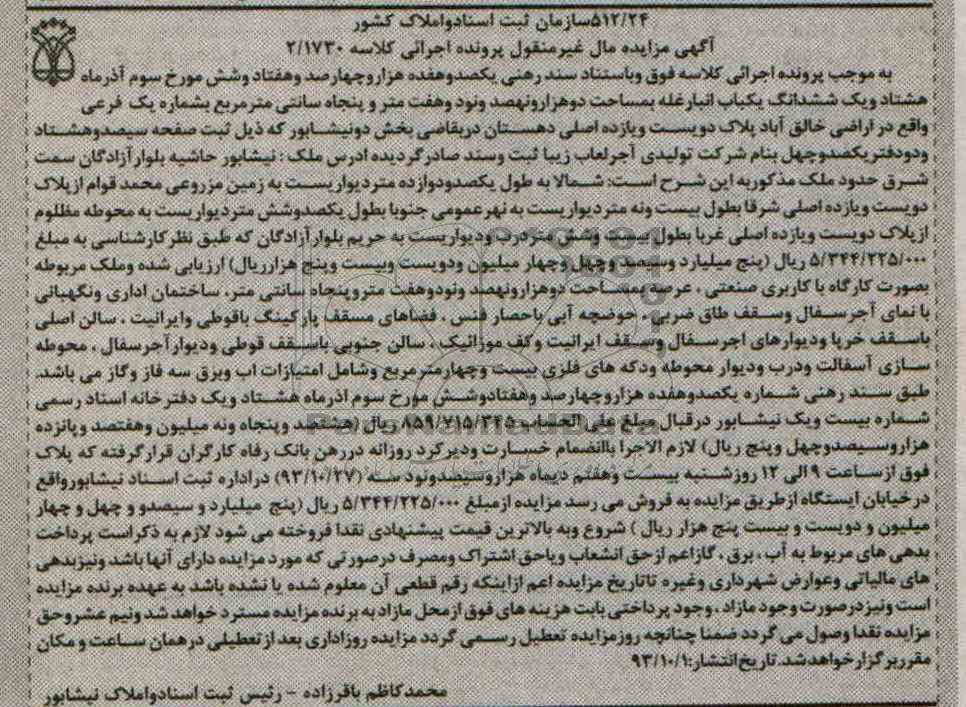 ۵۱۲/۲۴سازمان ثبت اسنادواملاک کشور
آگهی مزایده مال غیرمنقول پرونده اجرائی کلاسه ۲/۱۷۳۰
به موجب پرونده اجرائی کلاسه فوق وباستناد سند رهنی یکصدوهفده هزاروچهارصد وهفتاد وشش مورخ سوم آذرماه
هشتاد ویک ششدانگ یکباب انبارغله بمساحت دوهزارونهصد ونود وهفت متر و پنجاه سانتی مترمربع بشماره یک فرعی
واقع در اراضی خالق آباد پلاک دویست ویازده اصلی دهستان دربقاضی بخش دونیشابور که ذیل ثبت صفحه سیصدوهشتاد
ودودفتریکصدوچهل بنام شرکت تولیدی آجرلعاب زیبا ثبت وسند صادرگردیده ادرس ملک : نیشابور حاشیه بلوارآزادگان سمت
شرق حدود ملک مذکوربه این شرح است: شمالا به طول یکصدودوازده متردیواریست به زمین مزروعی محمد قوام ازپلاک
دویست ویازده اصلی شرقا بطول بیست ونه متردیواریست به نهرعمومی جنوبا بطول یکصدوشش متردیواریست به محوطه مظلوم
ازپلاک دویست ویازده اصلی غربا بطول بیست وشش متردرب ودیواریست به حریم بلوارآزادگان که طبق نظرکارشناسی به مبلغ
۵/۳۴۴/۲۲۵/۰۰۰ ریال (پنج میلیارد وسیصد وچهل وچهار میلیون ودویست وبیست وپنج هزارریال) ارزیابی شده وملک مربوطه
بصورت کارگاه با کاربری صنعتی ، عرصه بمساحت دوهزارونهصد ونودوهفت متروپنجاه سانتی متر، ساختمان اداری ونگهبانی
با نمای آجرسفال وسقف طاق ضربی ، حوضچه آبی باحصار فنس ، فضاهای مسقف پارکینگ باقوطی وایرانیت ، سالن اصلی
باسقف خرپا ودیوارهای اجرسفال وسقف ایرانیت وکف موزائیک ، سالن جنوبی باسقف قوطی ودیوارآجرسفال ، محوطه
سازی آسفالت ودرب ودیوار محوطه ودکه های فلزی بیست وچهارمترمربع وشامل امتیازات اب وبرق سه فاز وگاز می باشد.
طبق سند رهنی شماره یکصدوهفده هزاروچهارصد وهفتادوشش مورخ سوم اذرماه هشتاد ویک دفترخانه اسناد رسمی
شماره بیست ویک نیشابور درقبال مبلغ علی الحساب ۸۵۹/۷۱۵/۳۴۵ ریال (هشتصد وپنجاه ونه میلیون وهفتصد وپانزده
هزاروسیصدوچهل وپنج ریال) لازم الاجرا باانضمام خسارت ودیرکرد روزانه دررهن بانک رفاه کارگران قرارگرفته که پلاک
فوق ازساعت ۹ الی ۱۲ روزشنبه بیست وهفتم دیماه هزاروسیصدونود سه (۹۳/۱۰/۲۷) دراداره ثبت اسناد نیشابورواقع
درخیابان ایستگاه ازطریق مزایده به فروش می رسد مزایده ازمبلغ ۵/۳۴۴/۲۲۵/۰۰۰ ریال (پنج میلیارد و سیصدو و چهل و چهار
میلیون و دویست و بیست پنج هزار ریال ) شروع وبه بالاترین قیمت پیشنهادی نقدا فروخته می شود لازم به ذکراست پرداخت
بدهی های مربوط به آب ، برق ، گازاعم ازحق انشعاب ویاحق اشتراک ومصرف درصورتی که مورد مزایده دارای آنها باشد ونیزبدهی
های مالیاتی وعوارض شهرداری وغیره تاتاریخ مزایده اعم ازاینکه رقم قطعی آن معلوم شده یا نشده باشد به عهده برنده مزایده
است ونیزدرصورت وجود مازاد ، وجود پرداختی بابت هزینه های فوق ازمحل مازاد به برنده مزایده مسترد خواهد شد ونیم عشروحق
مزایده نقدا وصول می گردد ضمنا چنانچه روزمزایده تعطیل رسمی گردد مزایده روزاداری بعد ازتعطیلی درهمان ساعت و مکان
مقرربرگزارخواهدشد. تاریخ انتشار:۹۳/۱۰/۱
محمدکاظم باقرزاده - رئیس ثبت اسنادواملاک نیشابور